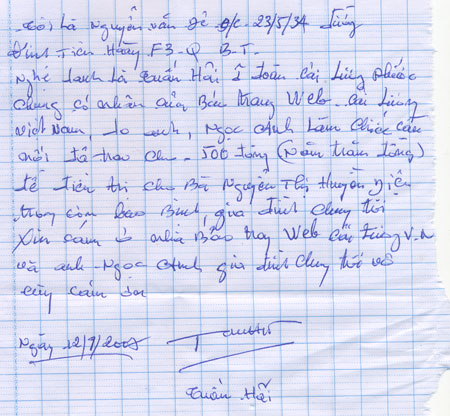 Tôi là Nguyễn văn Đẻ đ/c 23/5/34 đường
Đinh Tiên Hoàng F3-Q B.T.
Nghệ danh là Tuấn Hải ở đoàn cải lương phước
chung có nhận của Báo trang Web cải lương
việt Nam, do anh, Ngọc Anh làm chiếc cầu
nối đã trao cho 500 đồng (Năm trăm đồng)
để điện trị cho Bà Nguyễn Thị Huyền
trong cơn bạo Bình, gia đình chúng tôi
Xin cám ơ nhà Báo trag Web cải lương V.N
và anh Ngọc Anh gia đình chúng tôi vô
cùng cám ơn
Ngày 12/9/2005
Tuấn Hải